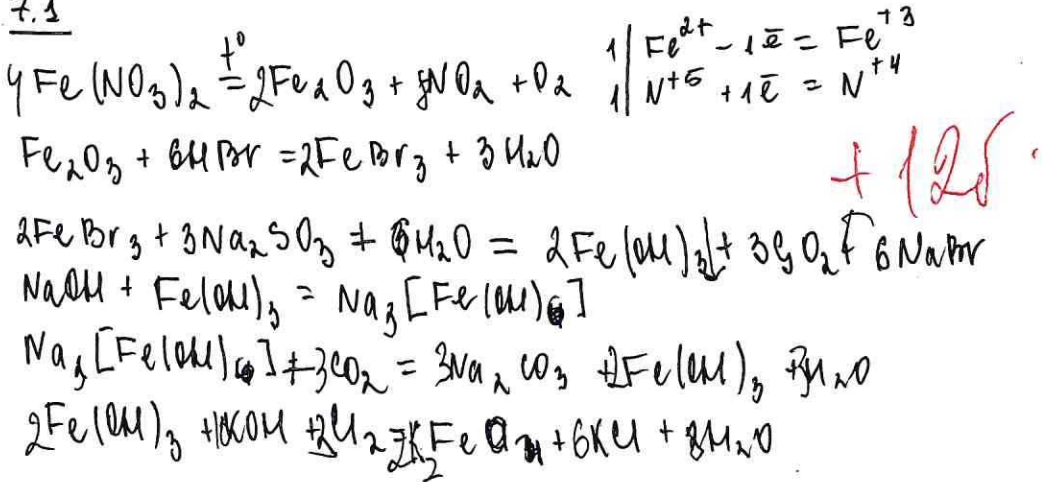 7.1
4Fe(NO3)2 =t°= 2Fe2O3 + 8NO2 + O2
1| Fe2+ - 1ē = Fe+3
1| N+5 + 1ē = N+4
Fe2O3 + 6HBr = 2FeBr3 + 3H2O
+ 12б
2FeBr3 + 3Na2SO3 + 6H2O = 2Fe(OH)3↓ + 3SO2↑ + 6NaBr
NaOH + Fe(OH)3 = Na3[Fe(OH)6]
Na3[Fe(OH)6] + 3CO2 = 3Na2CO3 + 2Fe(OH)3 + 3H2O
2Fe(OH)3 + 10KOH + 3Cl2 = 2K2FeO4 + 6KCl + 8H2O